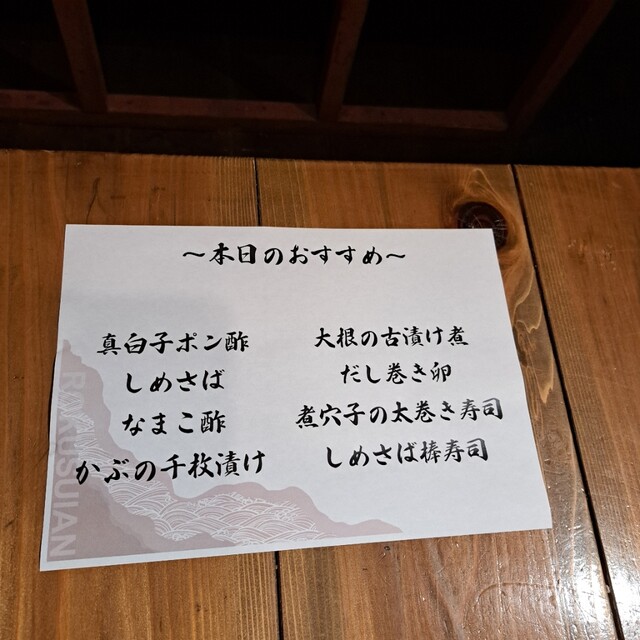 ~本日のおすすめ~
真白子ポン酢
しめさば
なまこ酢
かぶの千枚漬け
大根の古漬け煮
だし巻き卵
煮穴子の太巻き寿司
しめさば棒寿司
RAKUSUIAN